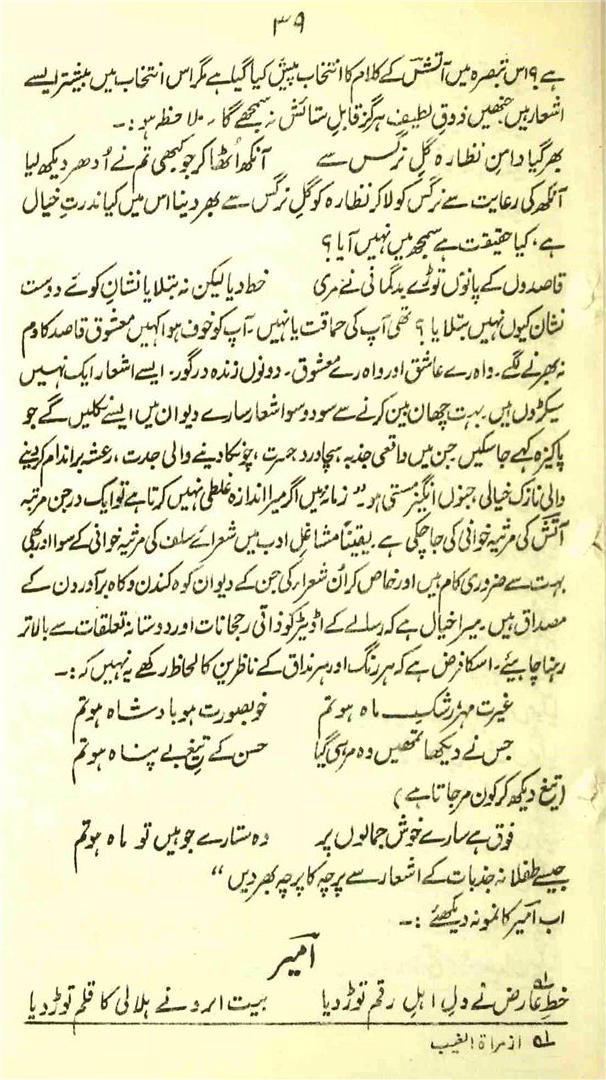 ۳۹
ہے ۹ اس تبصرہ میں آتشؔ کے کلام کا انتخاب پیش کیا گیا ہے مگر اس انتخاب میں بیشتر ایسے
اشعار ہیں جنھیں ذوقِ لطیف ہرگز قابلِ ستائش نہ سمجھے گا۔ ملاحظہ ہو:۔
بھر گیا دامنِ نظارہ گلِ نرگس سے آنکھ اُٹھا کر جو کبھی تم نے اُدھر دیکھ لیا
آنکھ کی رعایت سے نرگس کو لا کر نظارہ کو گلِ نرگس سے بھر دینا اس میں کیا ندرتِ خیال
ہے، کیا حقیقت ہے سمجھ میں نہیں آیا؟
قاصدوں کے پانوں توڑے بدگمانی نے مری خط دیا لیکن نہ بتلایا نشانِ کوئے دوست
نشان کیوں نہیں بتلایا؟ تھی آپ کی حماقت یا نہیں۔ آپ کو خوف ہوا کہیں معشوق قاصد کا دم
نہ بھرنے لگے۔ واہ رے عاشق اور واہ رے معشوق۔ دونوں زندہ درگور۔ ایسے اشعار ایک نہیں
سیکڑوں ہیں۔ بہت چھان بین کرنے سے سو دو سو اشعار سارے دیوان میں ایسے نکلیں گے جو
پاکیزہ کہے جا سکیں جن میں واقعی جذبہ، سچا درد، حسرت، چونکا دینے والی جدت، رعشہ براندام کر دینے
والی نازک خیالی، جنوں انگیز مستی ہو۔" زمانہ میں اگر میرا اندازہ غلطی نہیں کرتا ہے تو ایک درجن مرتبہ
آتشؔ کی مرثیہ خوانی کی جا چکی ہے۔ یقیناً مشاغلِ ادب میں شعرائے سلف کی مرثیہ خوانی کے سوا اور بھی
بہت سے ضروری کام ہیں اور خاص کر اُن شعراء کی جن کے دیوان کوہ کندن و کاہ برآوردن کے
مصداق ہیں۔ میرا خیال ہے کہ رسالے کے اڈیٹر کو ذاتی رجحانات اور دوستانہ تعلقات سے بالاتر
رہنا چاہیئے۔ اسکا فرض ہے کہ ہر رنگ اور ہر مذاق کے ناظرین کا لحاظ رکھے یہ نہیں کہ:۔
غیرتِ مہر رشکِ ماہ ہو تم خوبصورت ہو بادشاہ ہو تم
جس نے دیکھا تمھیں وہ مر ہی گیا حسن کے تیغِ بے پناہ ہو تم
(تیغ دیکھ کر کون مر جاتا ہے)
فوق ہے سارے خوش جمالوں پر وہ ستارے جو ہیں تو ماہ ہو تم
جیسے طفلانہ جذبات کے اشعار سے پرچہ کا پرچہ بھر دیں"
اب امیر کا نمونہ دیکھئے:۔
امیرؔ
خطِ عارض نے دلِ اہلِ رقم توڑ دیا بیت ابرو نے ہلالی کا قلم توڑ دیا
لہ از مراۃ الغیب